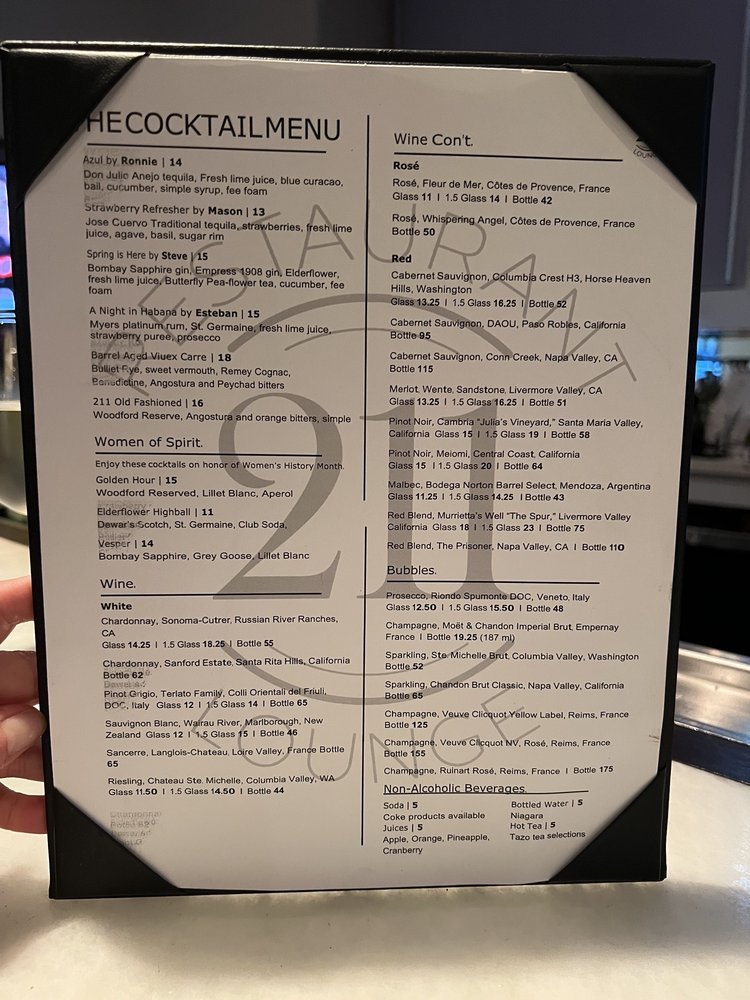 HECOCKTAILMENU
Azul by Ronnie | 14
Don Julio Anejo tequila, Fresh lime juice, blue curacao,
bail, cucumber, simple syrup, fee foam
Strawberry Refresher by Mason | 13
Jose Cuervo Traditional tequila, strawberries, fresh lime
juice, agave, basil, sugar rim
Spring is Here by Steve | 15
Bombay Sapphire gin, Empress 1908 gin, Elderflower,
fresh lime juice, Butterfly Pea-flower tea, cucumber, fee
foam
A Night in Habana by Esteban | 15
Myers platinum rum, St. Germaine, fresh lime juice,
strawberry puree, prosecco
Barrel Aged Viuex Carre | 18
Bulliet Rye, sweet vermouth, Remey Cognac,
Benedictine, Angostura and Peychad bitters
211 Old Fashioned | 16
Woodford Reserve, Angostura and orange bitters, simple
Women of Spirit.
Enjoy these cocktails on honor of Women's History Month.
Golden Hour | 15
Woodford Reserved, Lillet Blanc, Aperol
Elderflower Highball | 11
Dewar's Scotch, St. Germaine, Club Soda,
Vesper | 14
Bombay Sapphire, Grey Goose, Lillet Blanc
Wine.
White
Chardonnay, Sonoma-Cutrer, Russian River Ranches,
CA
Glass 14.25 I 1.5 Glass 18.25 I Bottle 55
Chardonnay, Sanford Estate, Santa Rita Hills, California
Bottle 62
Pinot Grigio, Terlato Family, Colli Orientali del Friuli,
DOC, Italy Glass 12 I 1.5 Glass 14 I Bottle 65
Sauvignon Blanc, Wairau River, Marlborough, New
Zealand Glass 12 I 1.5 Glass 15 I Bottle 46
Sancerre, Langlois-Chateau, Loire Valley, France Bottle
65
Riesling, Chateau Ste. Michelle, Columbia Valley, WA
Glass 11.50 I 1.5 Glass 14.50 I Bottle 44
Wine Con't.
Rosé
Rosé, Fleur de Mer, Côtes de Provence, France
Glass 11 I 1.5 Glass 14 I Bottle 42
Rosé, Whispering Angel, Côtes de Provence, France
Bottle 50
Red
Cabernet Sauvignon, Columbia Crest H3, Horse Heaven
Hills, Washington
Glass 13.25 I 1.5 Glass 16.25 I Bottle 52
Cabernet Sauvignon, DAOU, Paso Robles, California
Bottle 95
Cabernet Sauvignon, Conn Creek, Napa Valley, CA
Bottle 115
Merlot, Wente, Sandstone, Livermore Valley, CA
Glass 13.25 I 1.5 Glass 16.25 I Bottle 51
Pinot Noir, Cambria "Julia's Vineyard," Santa Maria Valley,
California Glass 15 I 1.5 Glass 19 I Bottle 58
Pinot Noir, Meiomi, Central Coast, California
Glass 15 I 1.5 Glass 20 I Bottle 64
Malbec, Bodega Norton Barrel Select, Mendoza, Argentina
Glass 11.25 I 1.5 Glass 14.25 I Bottle 43
Red Blend, Murrietta's Well "The Spur," Livermore Valley
California Glass 18 I 1.5 Glass 23 I Bottle 75
Red Blend, The Prisoner, Napa Valley, CA I Bottle 110
Bubbles.
Prosecco, Riondo Spumonte DOC, Veneto, Italy
Glass 12.50 I 1.5 Glass 15.50 I Bottle 48
Champagne, Moët & Chandon Imperial Brut, Empernay
France I Bottle 19.25 (187 ml)
Sparkling, Ste. Michelle Brut, Columbia Valley, Washington
Bottle 52
Sparkling, Chandon Brut Classic, Napa Valley, California
Bottle 65
Champagne, Veuve Clicquot Yellow Label, Reims, France
Bottle 125
Champagne, Veuve Clicquot NV, Rosé, Reims, France
Bottle 155
Champagne, Ruinart Rosé, Reims, France I Bottle 175
Non-Alcoholic Beverages.
Soda | 5
Coke products available
Juices | 5
Apple, Orange, Pineapple,
Cranberry
Bottled Water | 5
Niagara
Hot Tea | 5
Tazo tea selections
RESTAURANT
211
LOUNGE